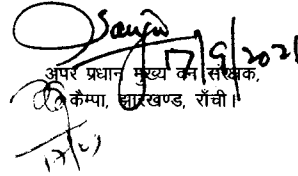 Sanjiv
17/9/2021
अपर प्रधान मुख्य वन संरक्षक,
कैम्पा, झारखण्ड, राँची।